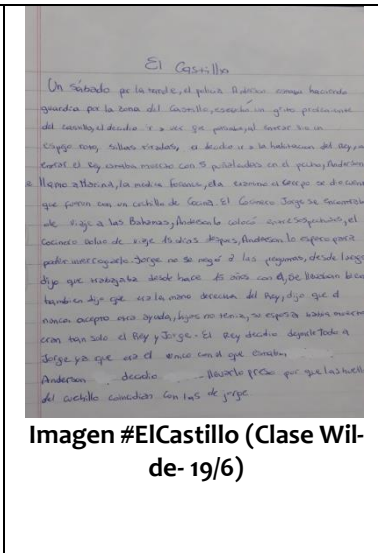 El Castillo
Un sábado por la tarde, el policía Anderson estaba haciendo
guardia por la zona del Castillo, escuchó un grito
del castillo, el decidio ir a ver que pasaba, al entrar vio un
espejo roto, sillas tiradas, el decidio ir a la habitacion del Rey, al
entrar el Rey estaba muerto con 5 puñaladas en el pecho, Anderson
llamo a Mariná, la medica forense, ella examino el cuerpo se dio cuenta
que fueron con un cuchillo de Cocina. El Cocinero Jorge se encontraba
de viaje a las Bahamas, Anderson lo colocó como sospechoso, el
Cocinero volvio de viaje 15 dias despues, Anderson lo espero para
poder interrogarlo. Jorge no se negó a las preguntas, desde luego
dijo que trabajaba desde hace 15 años con el, se llevaban bien
tambien dijo que era la mano derecha del Rey, dijo que el
nunca acepto otra ayuda, hijos no tenia, su esposa habia muerto
eran tan solo el Rey y Jorge. El Rey decidio dejarle Todo a
Jorge ya que era el unico con el que contaba.
Anderson decidio llevarlo preso por que las huellas
del cuchillo coincidian con las de jorge.
Imagen #ElCastillo (Clase Wil-
de- 19/6)